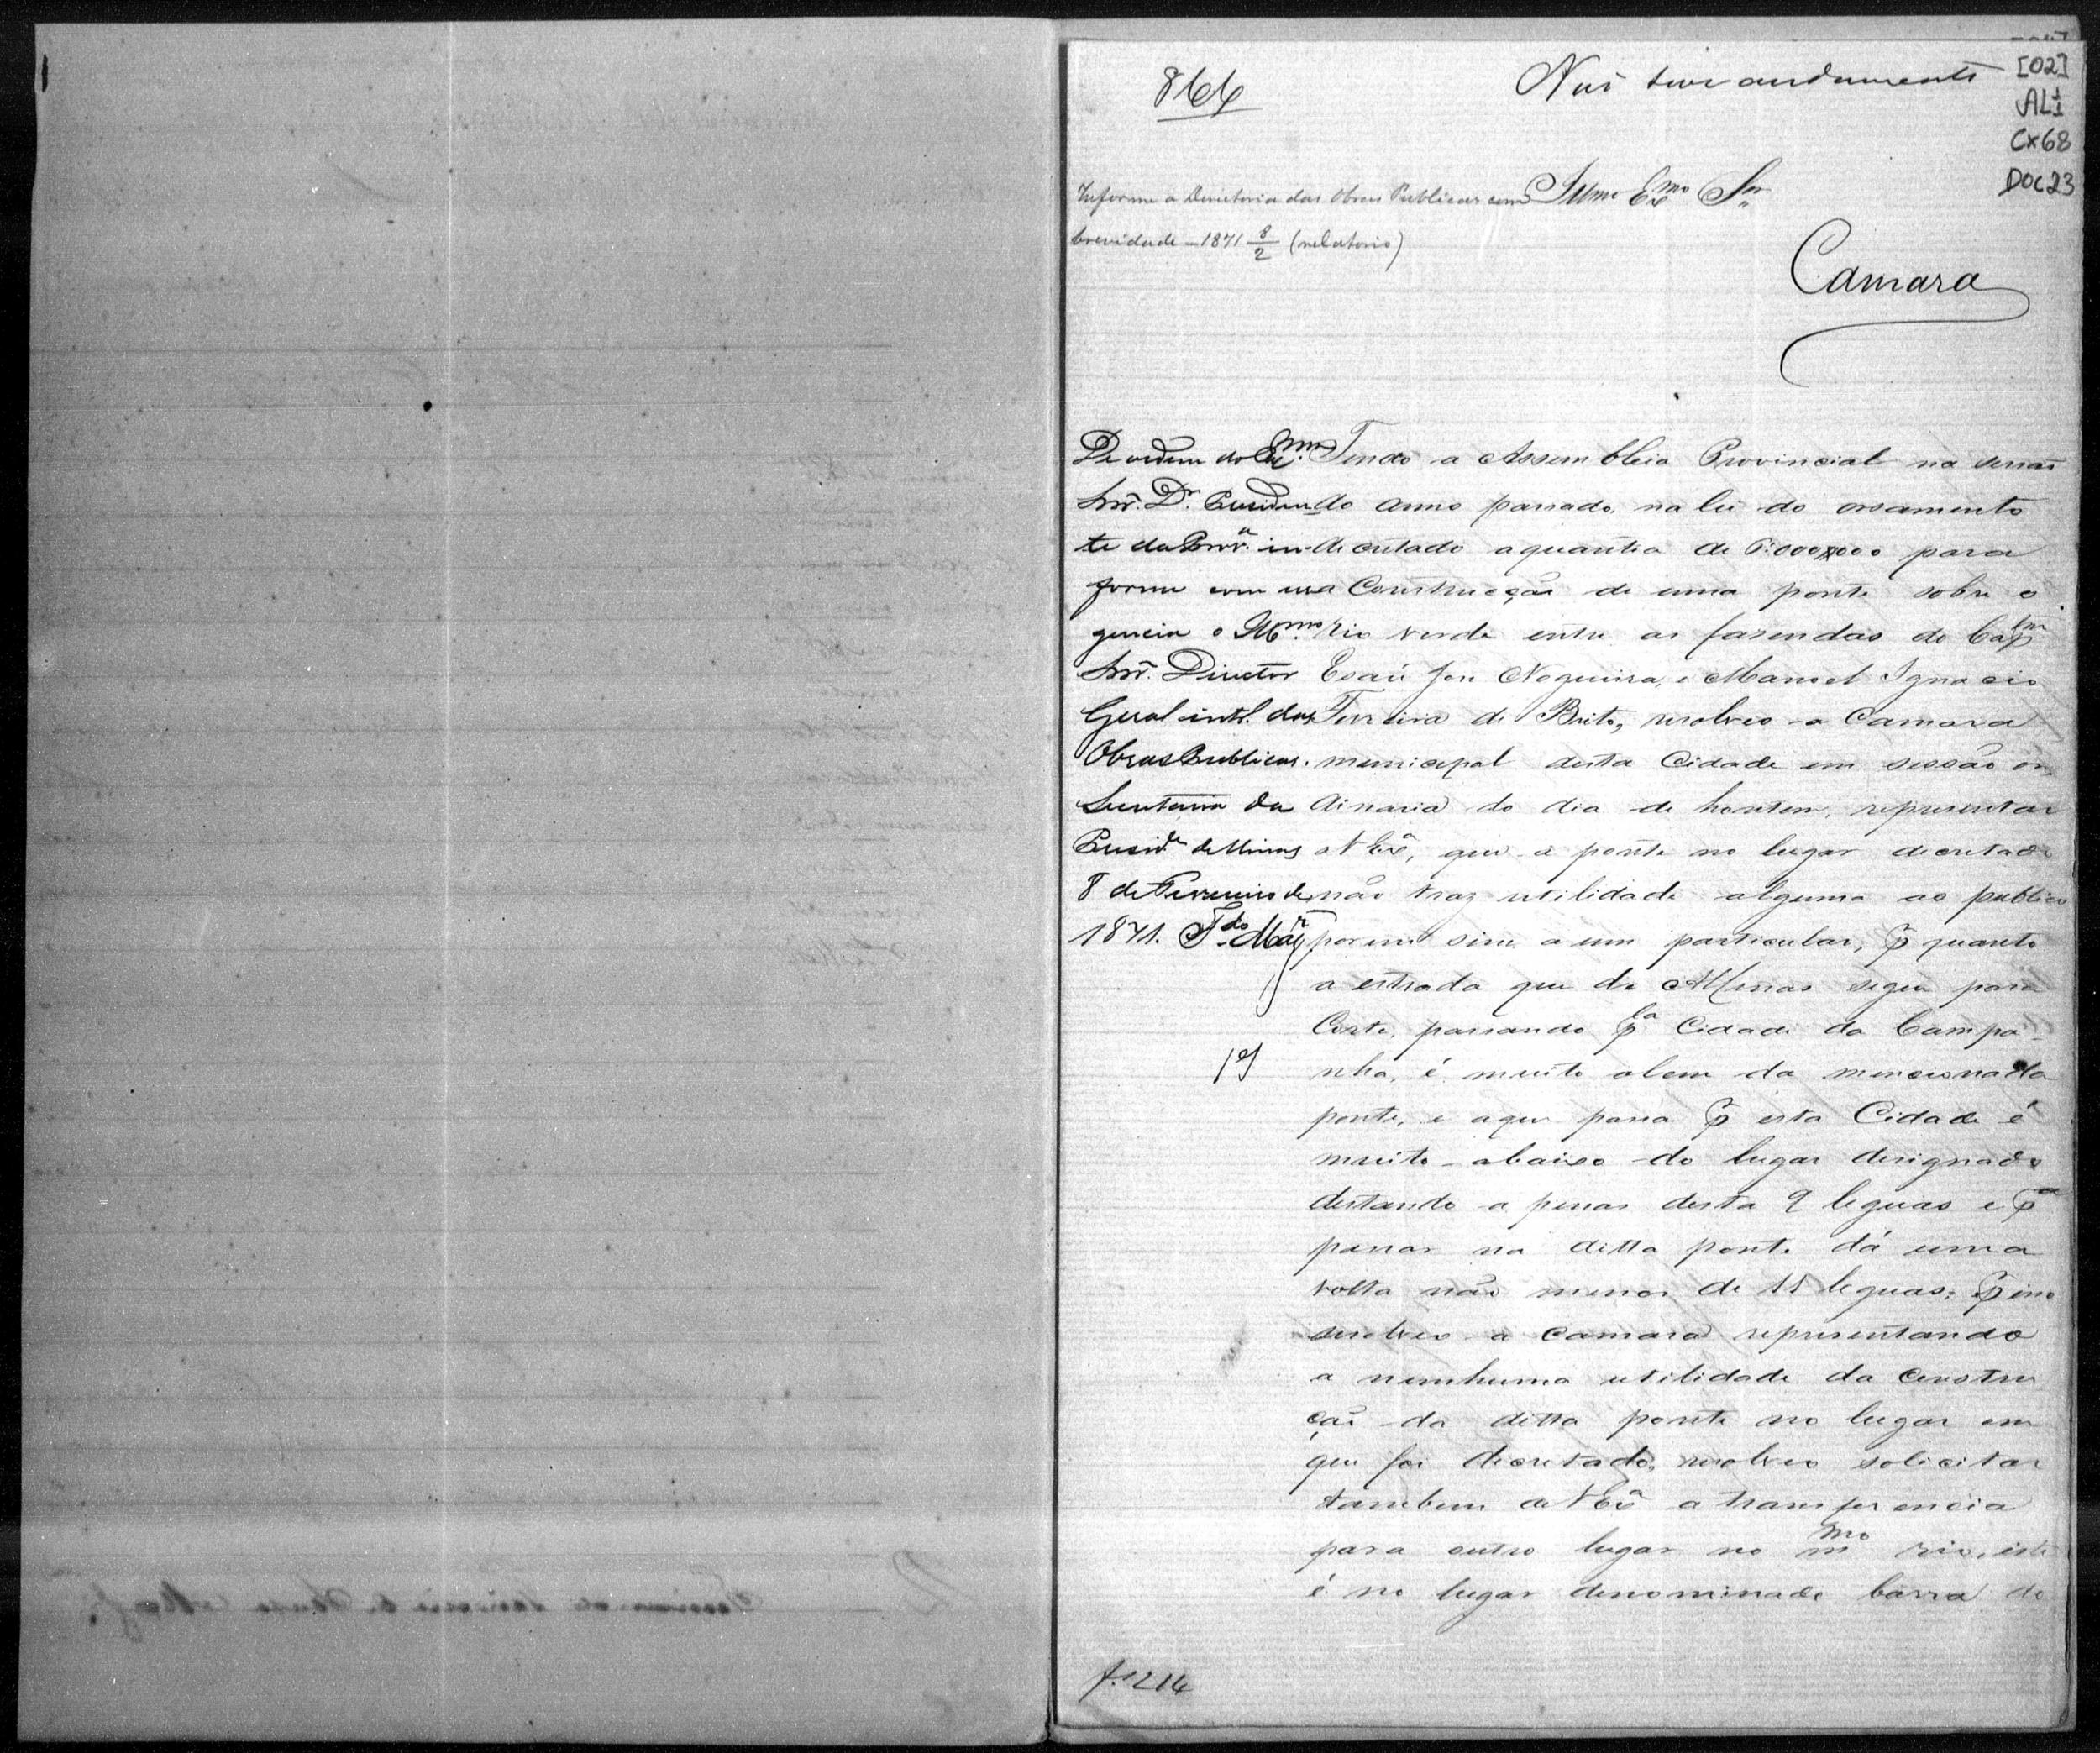 866
Não teve andamento
[02]
AL1
Cx68
DOC23
Informe a Directoria das Obras Publicas com
brevidade - 1871 8/2 (relatorio)
Illmo Exmo Snr
Camara
De ordem do Exmo.
Snr. Dr. Presiden-
te da Prova. in-
forme com ur-
gencia o Illmo.
Snr. Director
Geral intº. das
Obras Publicas.
Secretaria da
Presida de Minas
8 de Fevereiro de
1871.
Tendo a Assembleia Provincial na sessão
do anno passado, na lei do orsamento
decretado a quantia de :000$000 para
a Construcção de uma ponte sobre o
rio verde entre as fazendas do Capm
Esaú Jose Nogueira, e Manoel Ignacio
Ferreira de Brito, resolveo a Camara
municipal desta Cidade em sessão or
dinaria do dia de hontem, representar
a V Exª, que a ponte no lugar decretado
não traz utilidade alguma ao publico
porem sim a um particular, p quanto
a estrada que de Minas segue para
Corte, passando pla Cidade da Campa-
nha, é muito alem da mencionada
ponte, e a que passa p esta Cidade é
muito abaixo do lugar designado
distando a penas desta 9 leguas e pª
passar na ditta ponte dá uma
volta não menos de 15 leguas; p isso
resolveo a Camara representando
a nenhuma utilidade da Constru
ção da ditta ponte no lugar em
que foi decretado, resolveo solicitar
tambem de V Exª a transferencia
para outro lugar no mmo rio, isto
é no lugar denominado barra do